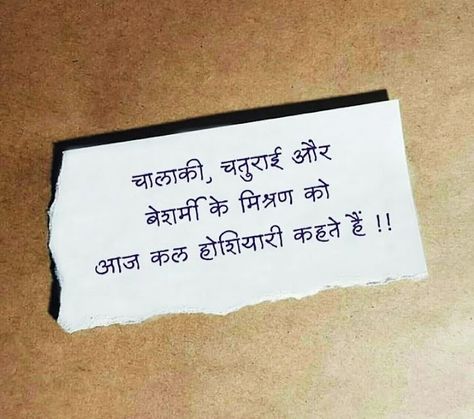 चालाकी, चतुराई और
बेशर्मी के मिश्रण को
आज कल होशियारी कहते हैं !!